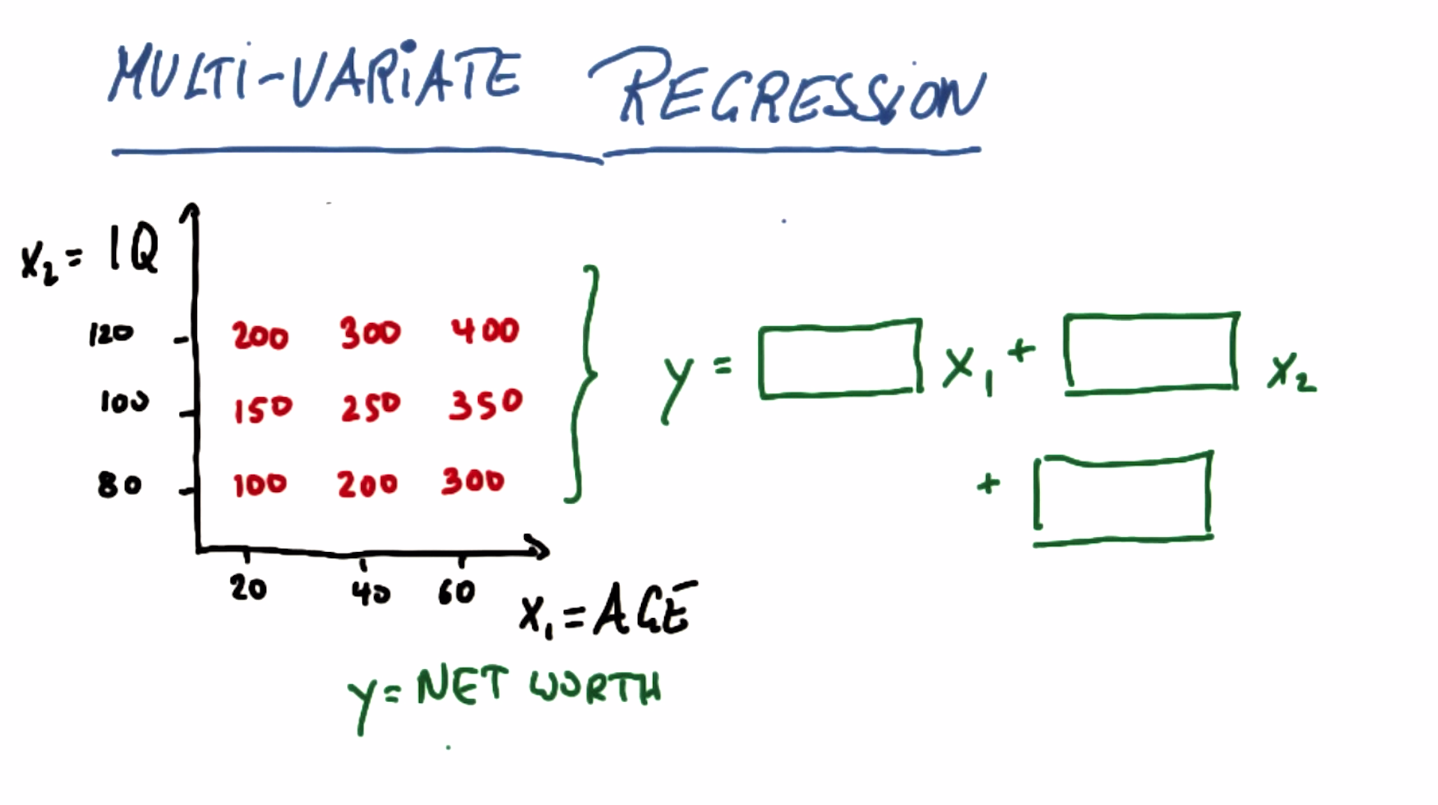 MULTI-VARIATE REGRESSION
x₂ = IQ
120 200 300 400
100 150 250 350
80 100 200 300
20 40 60
x₁ = AGE
y = NET WORTH
y = x₁ + x₂
+